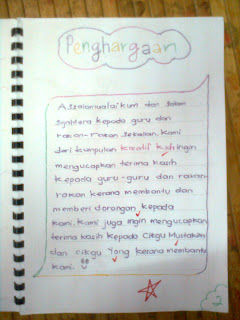 Penghargaan
Assalamualaikum dan Salam
Sejahtera kepada guru dan
rakan-rakan sekalian. Kami
dari kumpulan kreatif Kids ingin
mengucapkan terima kasih
kepada guru-guru dan rakan-
rakan kerana membantu dan
memberi dorongan kepada
kami. Kami juga ingin mengucapkan
terima kasih kepada Cikgu
dan cikgu Yong kerana membantu
kami.
2